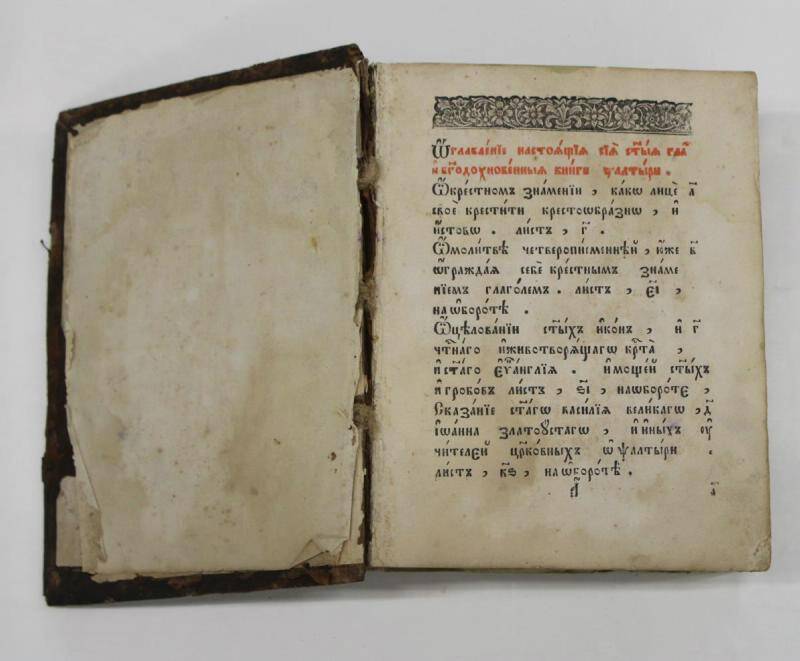 Ѿглавле́нїе настоѧ́щїѧ сїѧ̀ ст҃ы́ѧ
и҆ бг҃одохнове́нныѧ кни́ги ѱалты́ри .
Ѡ҆ кре́стномъ зна́менїи , ка́кѡ лицѐ а҃
своѐ крести́ти крестоѡбра́знѡ , и҆
и҆́стовѡ . ли́стъ , г҃ .
Ѡ҆ моли́твѣ четверопи́сменнѣй , ю҆́же в҃
ѡ҆гражда́ѧ себѐ кре́стнымъ зна́ме
нїемъ глаго́лемъ . ли́стъ , є҃і ,
на ѡ҆боро́тѣ .
Ѡ҆ цѣлова́нїи ст҃ы́хъ и҆ко́нъ , и҆ г҃
чтⷭ҇на́гѡ и҆ животворѧ́щагѡ крⷭ҇та̀ ,
и҆ ст҃а́гѡ є҆ѵⷢ҇а́нглїѧ . и҆ моще́й ст҃ы́хъ
и҆ гробо́въ ли́стъ , ѕ҃і , на ѡ҆боро́тѣ ,
Сказа́нїе ст҃а́гѡ васи́лїѧ вели́кагѡ , д҃
і҆ѡа́нна златоꙋ́стагѡ , и҆ и҆ны́хъ оу҆
чи́телей црⷪ҇ко́вныхъ ѡ҆ ѱалты́ри .
ли́стъ , к҃ѕ , на ѡ҆боро́тѣ .
а҃